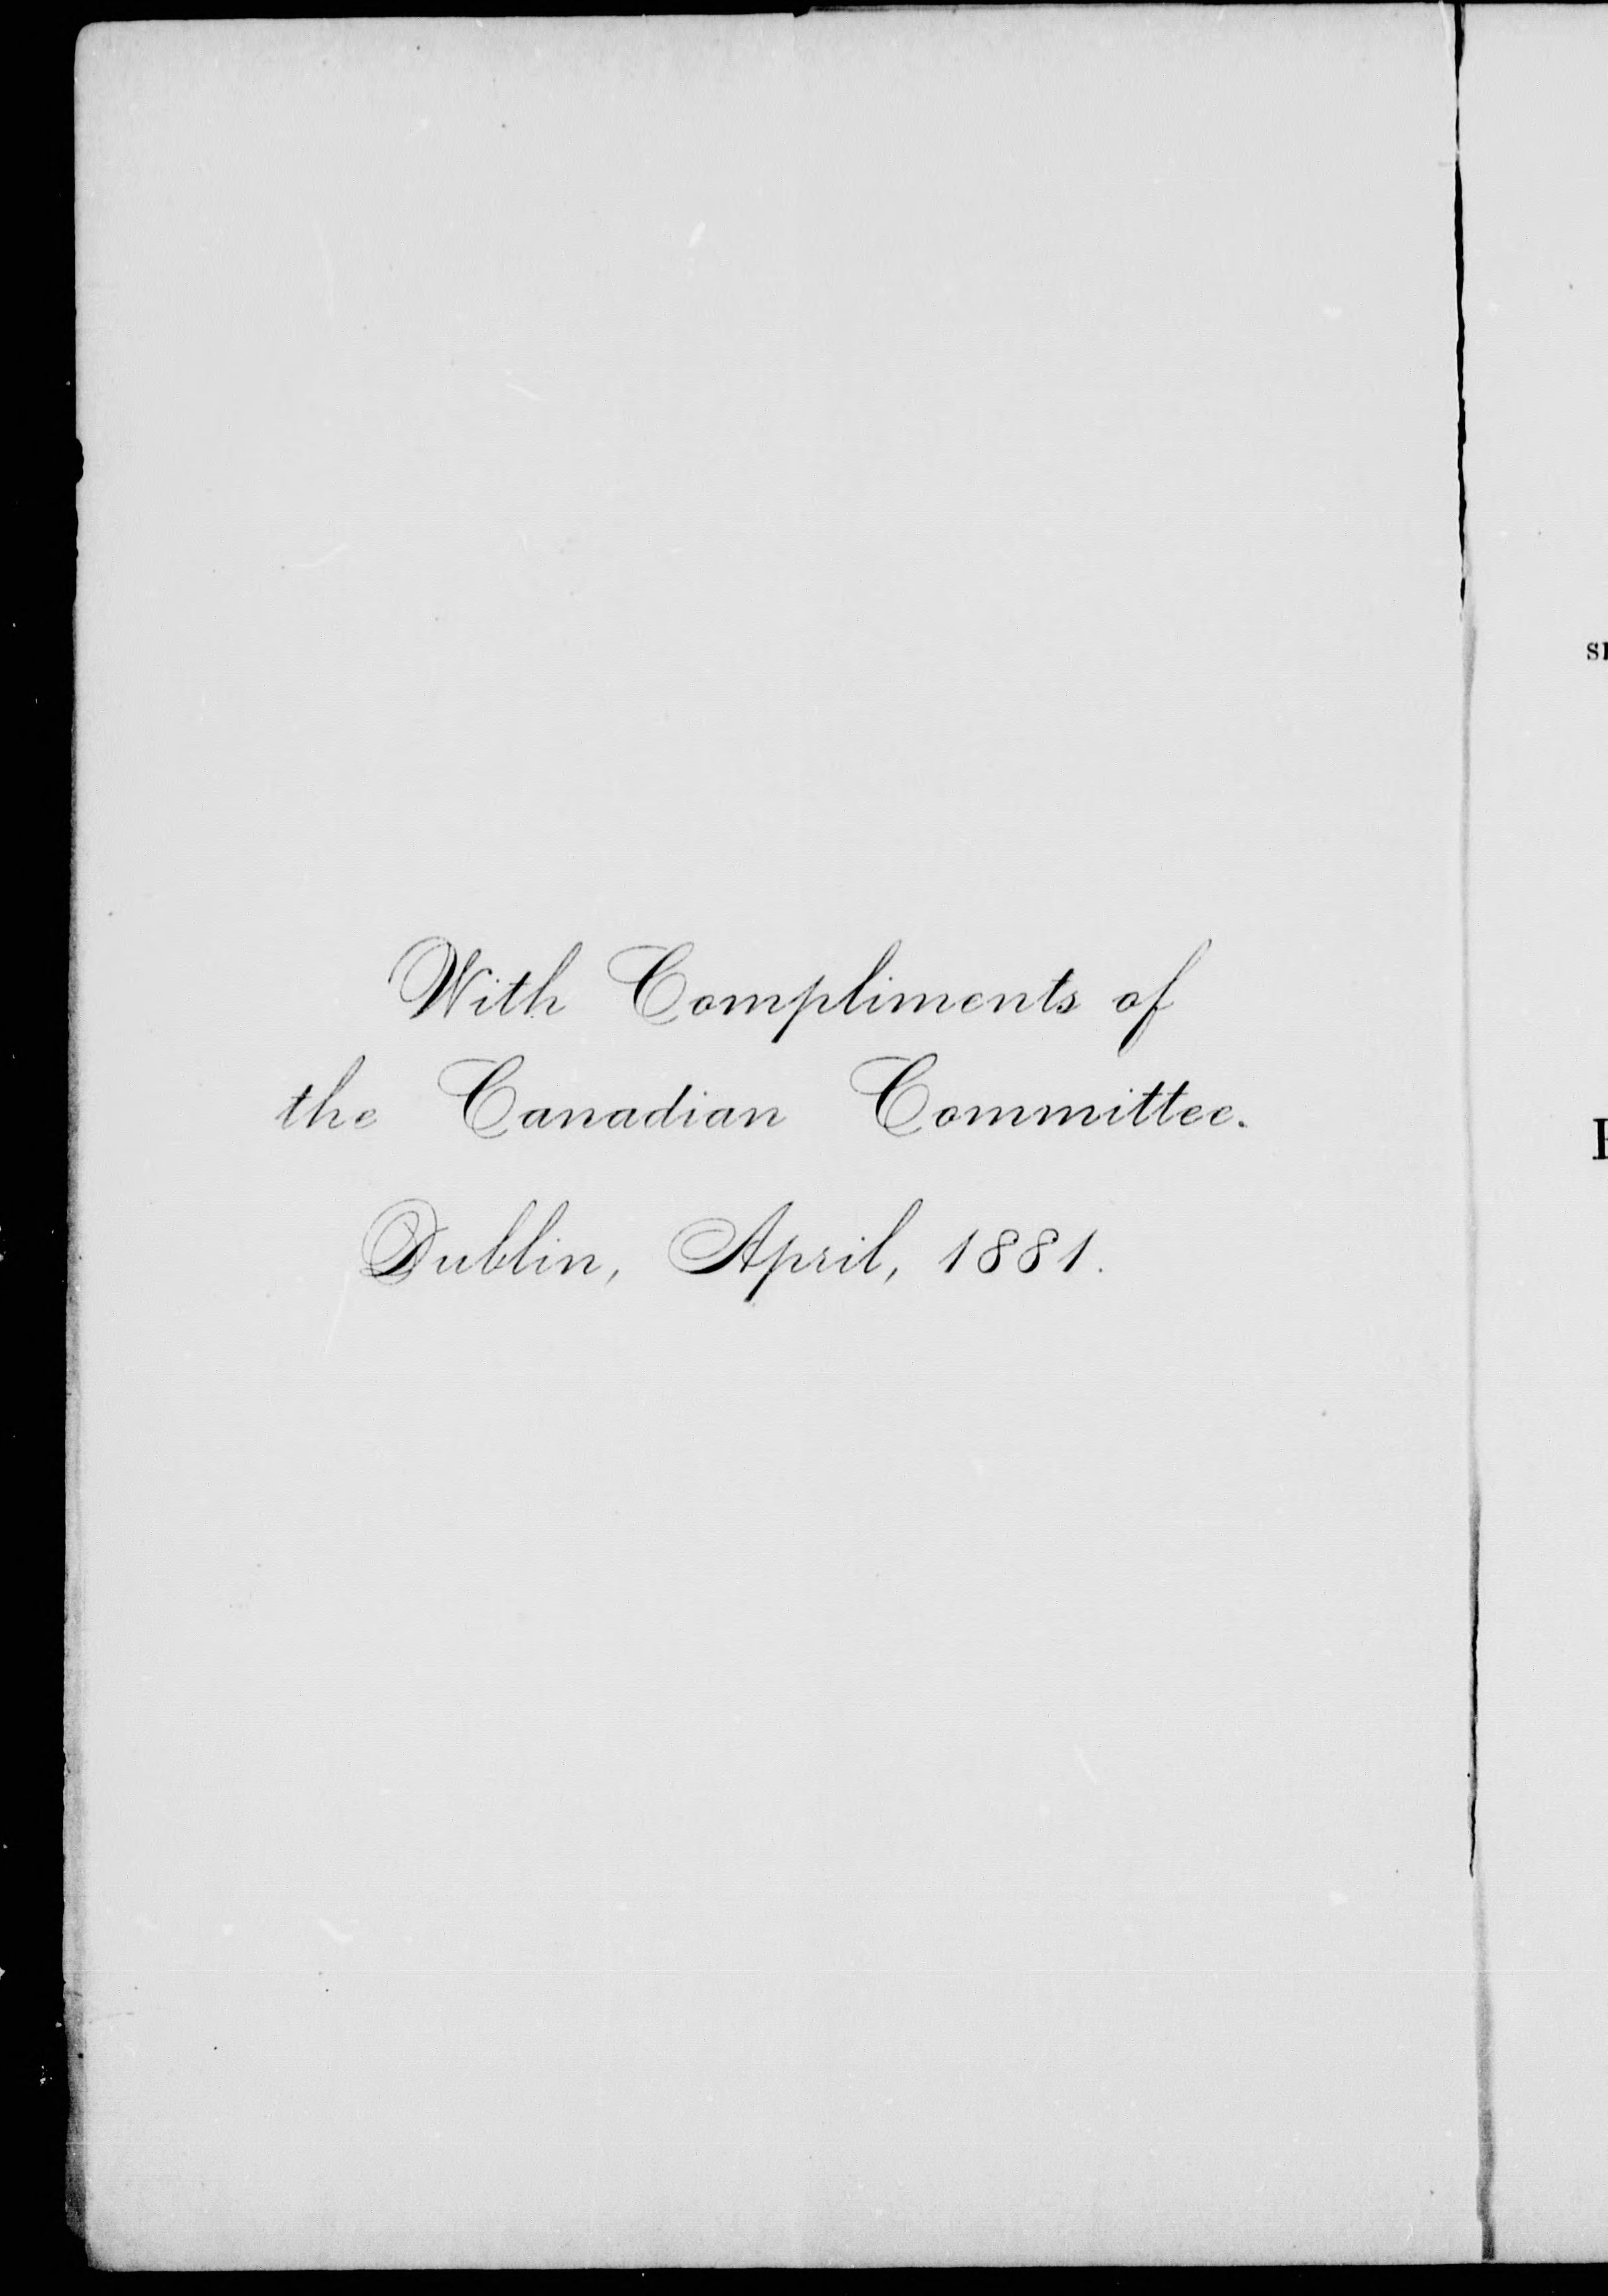 With Compliments of
the Canadian Committee.
Dublin, April, 1881.